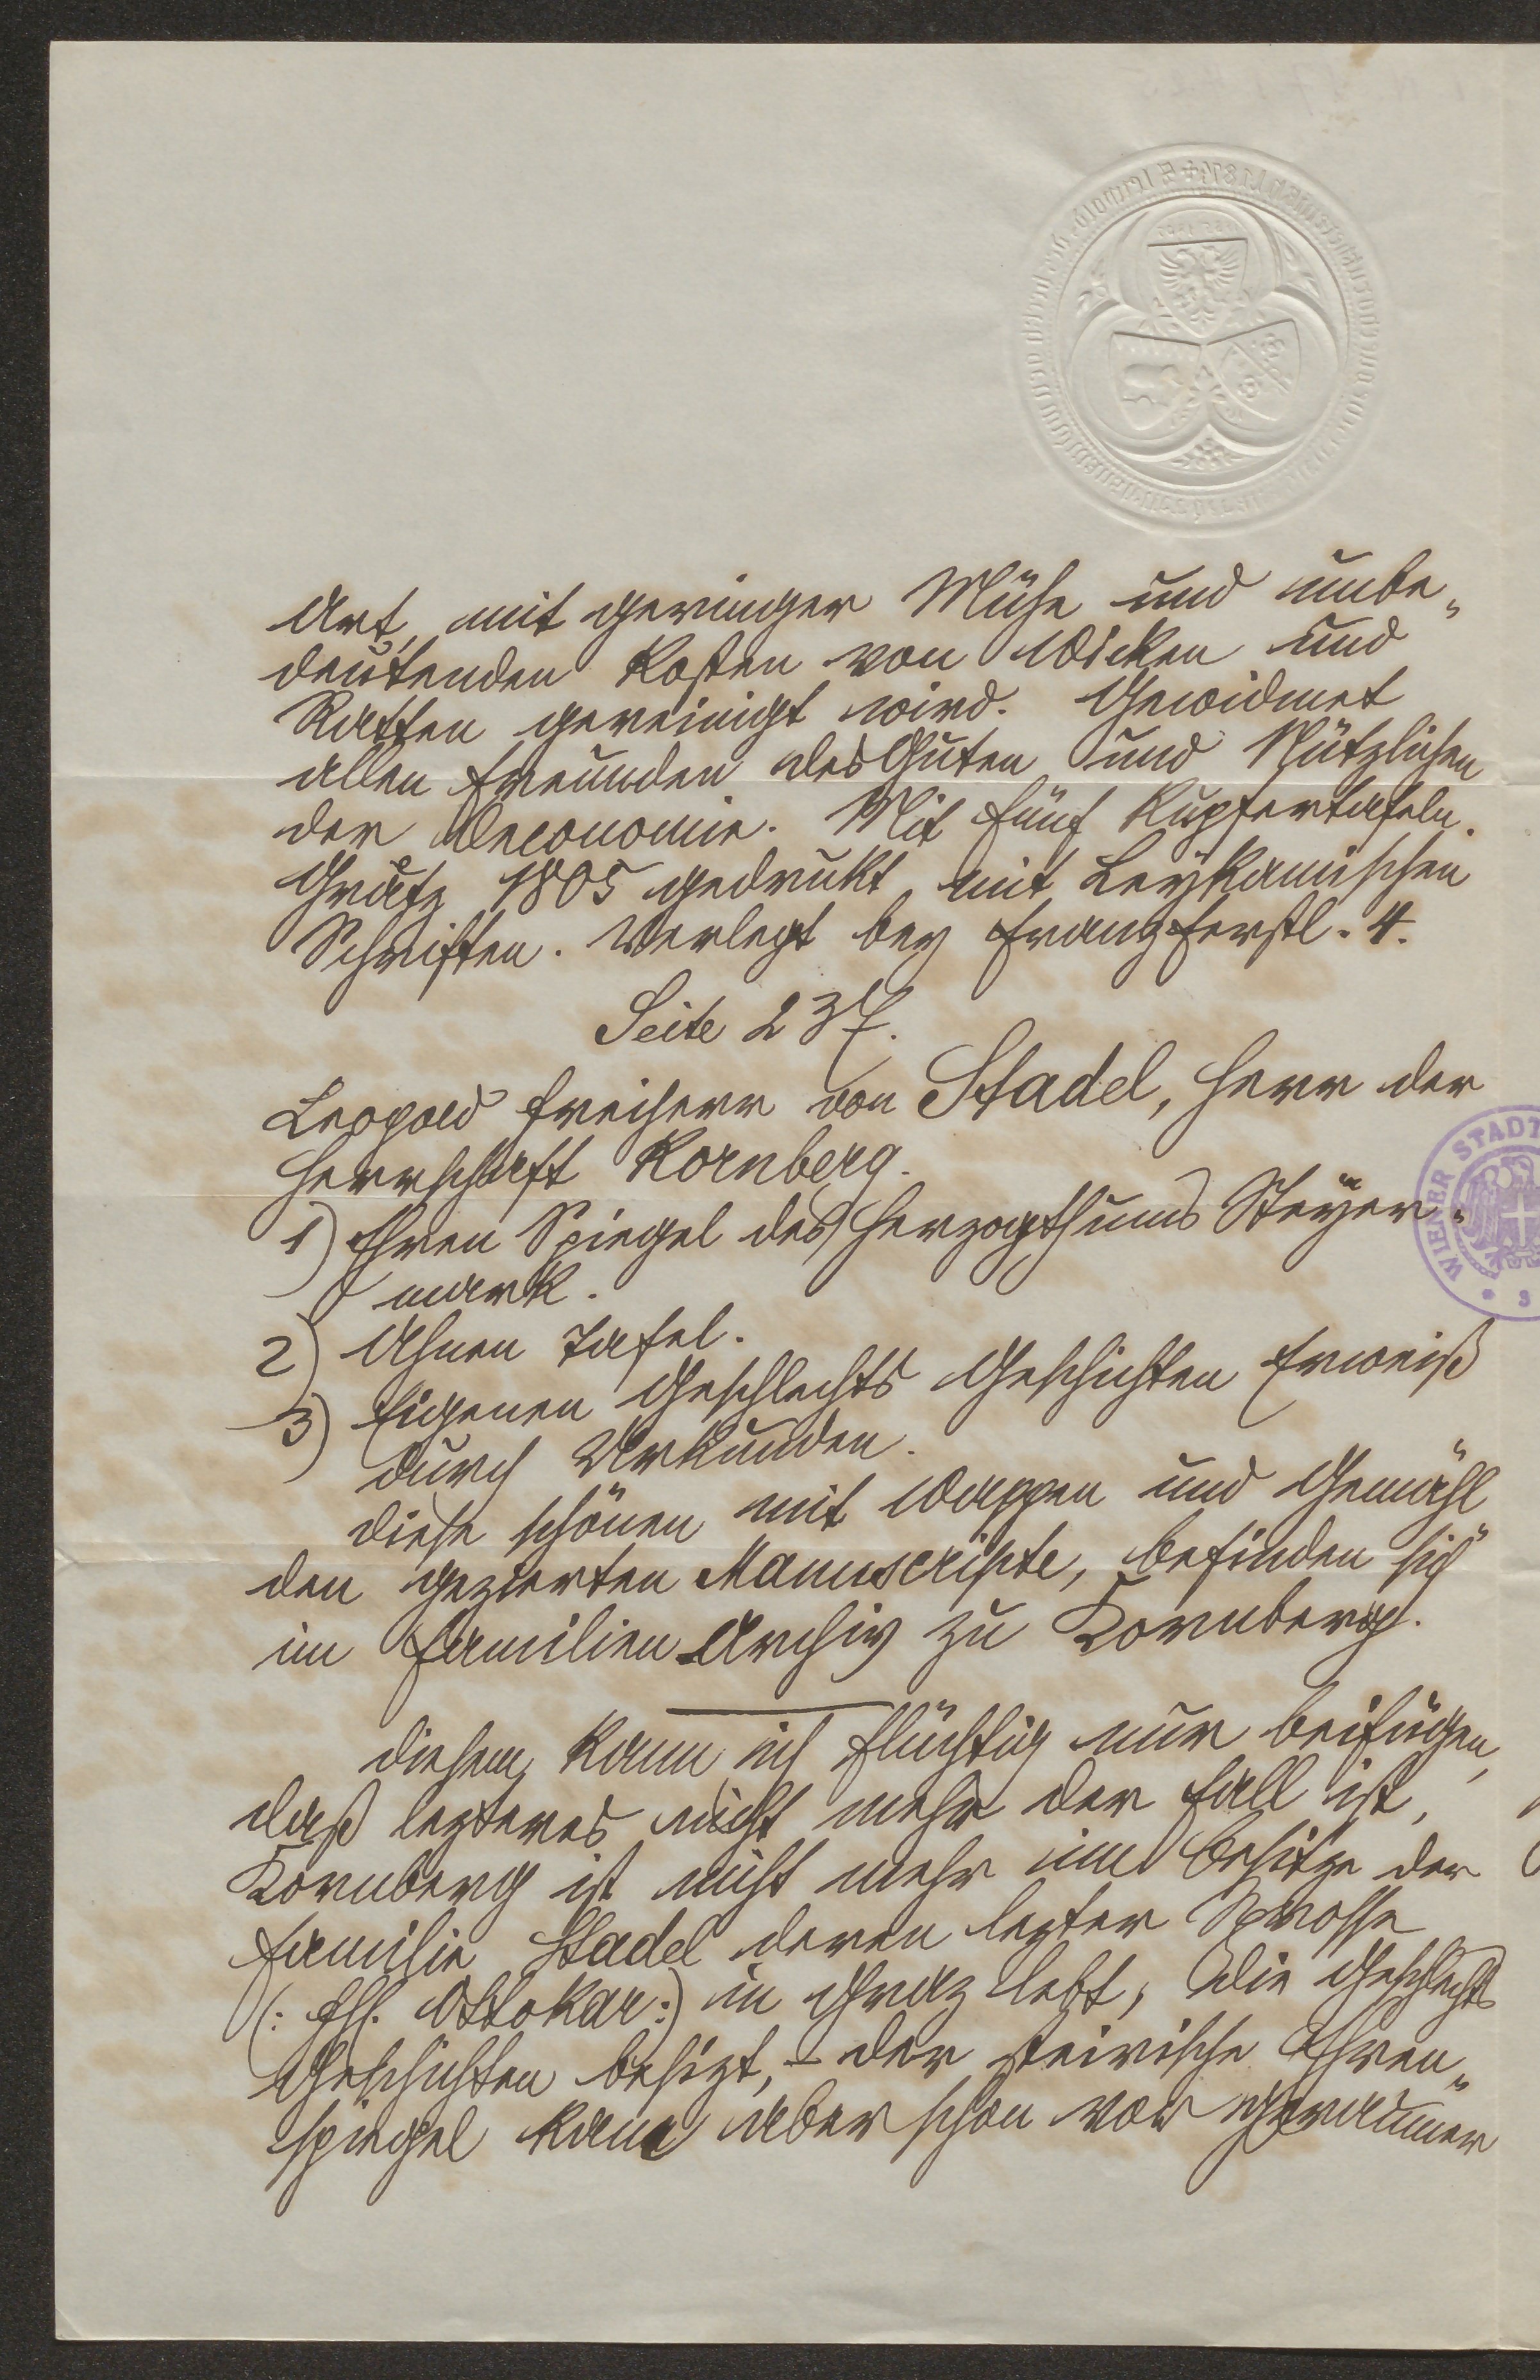 Art, mit geringer Mühe und unbe„
deutenden Kosten von Wicken und
Ratten gereinigt wird. Gewidmet
allen Freunden des Guten und Nützlichen
der Oeconomie. Mit fünf Kupfertafeln.
Grätz 1805 gedrukt mit Leykamischen
Schriften. Verlegt bey Franz Ferstl. 4.
Seite 237.
Leopold Freiherr von Stadel, Herr der
Herrschaft Kornberg.
1) Ehren Spiegel des Herzogthums Steyer„
mark.
2) Ahnen Tafel.
3) Eigenen Geschlechts Geschichten Erweiß
durch Urkunden.
Diese schönen mit Wappen und Gemähl„
den gezierten Manuscripte, befinden sich
im Familien Archiv zu Kornberg.
Diesem kann ich flüchtig nur beifügen,
daß lezteres nicht mehr der Fall ist,
Kornberg ist nicht mehr im Besitze der
Familie Stadel deren lezter Sprosse
(: Ottokar :) in Graz lebt, die Geschlechts
Geschichten besizt, – der steirische Ehren„
spiegel kam aber schon vor geraumer
WIENER STADT